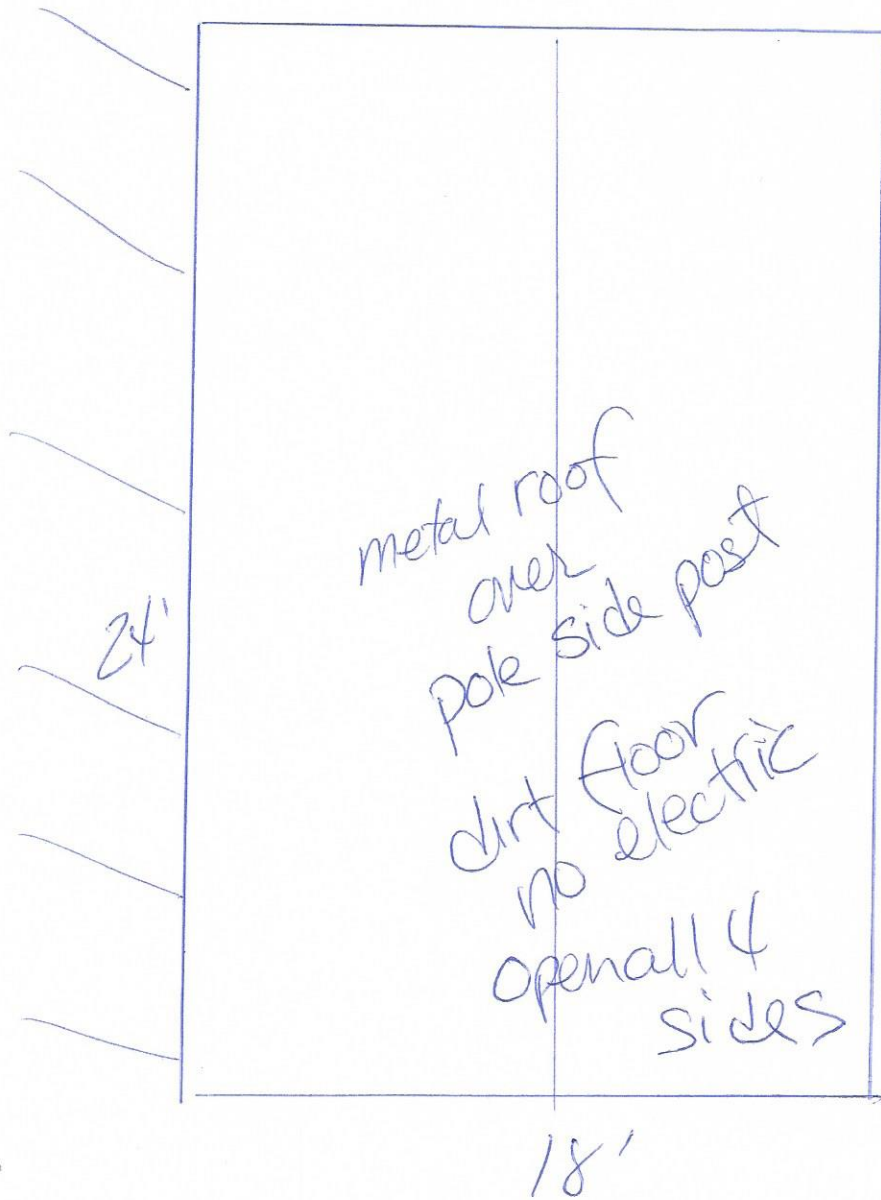 metal roof
over
pole side post
24'
dirt floor
no electric
open all 4
sides
18'